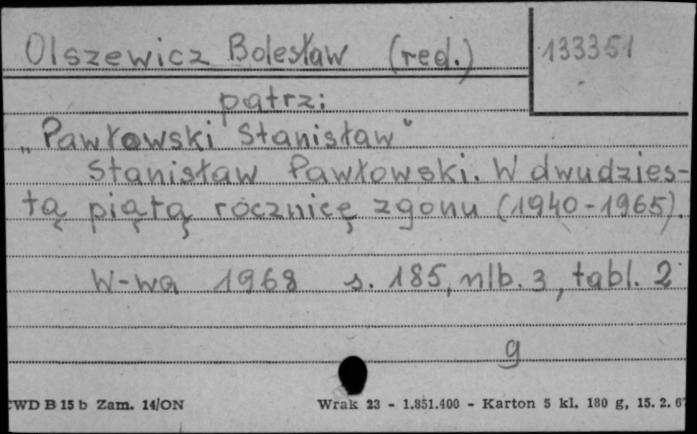 Olszewicz Bolesław (red.) 133351
patrz:
„Pawłowski Stanisław"
Stanisław Pawłowski. W dwudzies-
tą piątą rocznicę zgonu (1940-1965).
W-wa 1968 s. 185, nlb. 3, tabl. 2
g
CWD B 15 b Zam. 14/ON Wrak 23 - 1.851.400 - Karton 5 kl. 180 g, 15. 2. 67